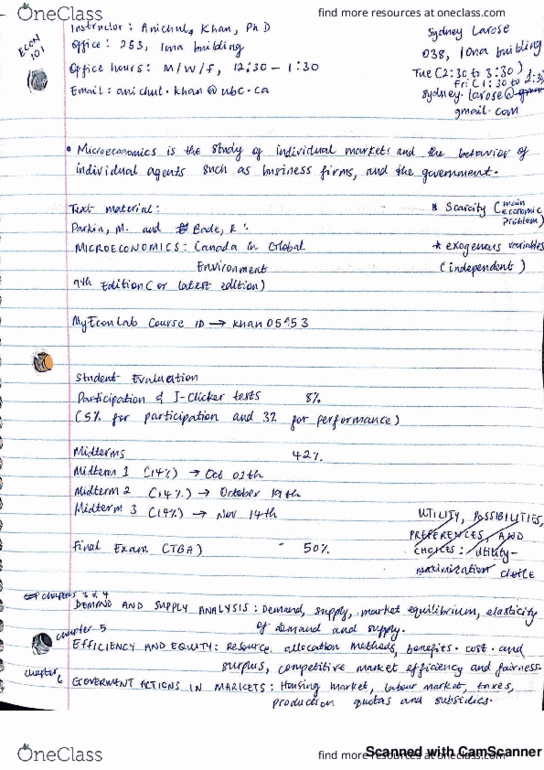 OneClass
find more resources at oneclass.com
ECON 101
Instructor: Anichul, Khan, Ph D
Office: 253, Iona building
Office hours: M/W/F, 12:30 - 1:30
Email: anichul.khan@ubc.ca
Sydney Larose
038, Iona building
Tue (2:30 to 3:30)
Fri (1:30 to
sydney.larose@
gmail.com
• Microeconomics is the study of individual markets and the behavior of
individual agents such as business firms, and the government.
Text material:
Parkin, M. and Bade, R:
MICROECONOMICS: Canada in Global
Environment
9th Edition (or latest edition)
* Scarcity (main economic problem)
* exogenous variables
(independent)
MyEconLab Course ID → khan
Student Evaluation
Participation & I-Clicker tests 8%
(5% for participation and 3% for performance)
Midterms 42%
Midterm 1 (14%) → Oct 01th
Midterm 2 (14%) → October 19th
Midterm 3 (14%) → Nov 14th
Final Exam (TBA) - 50%
UTILITY, POSSIBILITIES,
PREFERENCES, AND
CHOICES: Utility-
maximization choice
chapters 3 & 4
DEMAND AND SUPPLY ANALYSIS: Demand, supply, market equilibrium, elasticity
of demand and supply.
chapter 5
EFFICIENCY AND EQUITY: Resource allocation methods, benefits. cost. and
surplus, competitive market efficiency and fairness.
chapter 6
GOVERMENT ACTIONS IN MARKETS: Housing market, labour market, taxes,
production quotas and subsidies.
OneClass
find more resources at oneclass.com
Scanned with CamScanner